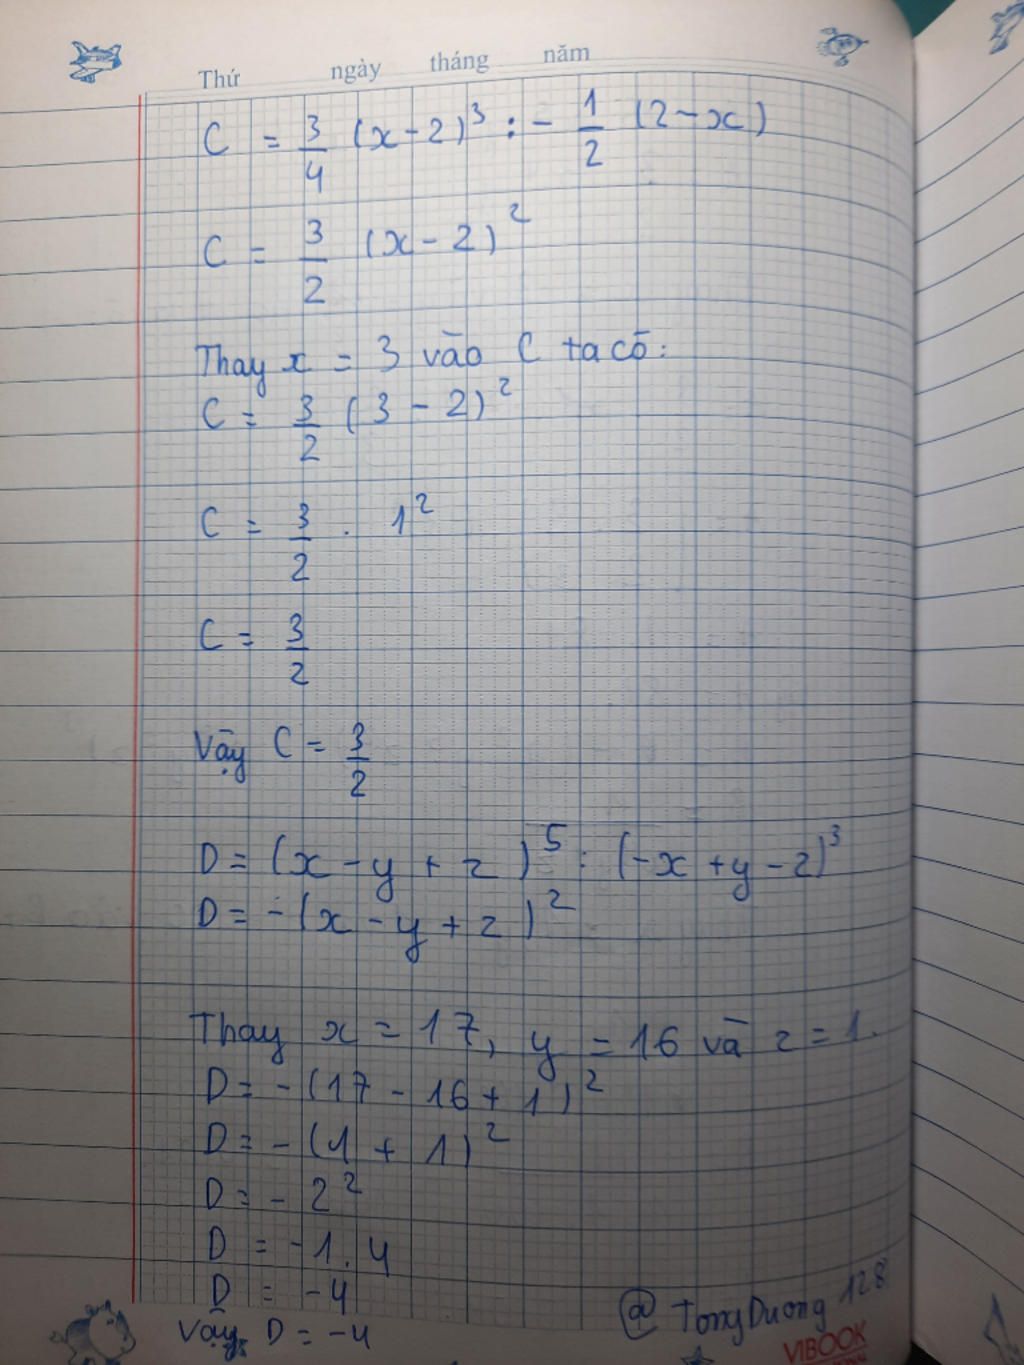 Thứ ngày tháng năm
C = 3/4 (x-2)³ : - 1/2 (2-x)
C = 3/2 (x-2)²
Thay x = 3 vào C ta có:
C = 3/2 (3-2)²
C = 3/2 . 1²
C = 3/2
Vậy C = 3/2
D = (x-y+z)⁵ : (-x+y-z)³
D = -(x-y+z)²
Thay x = 17, y = 16 và z = 1.
D = -(17-16+1)²
D = -(1+1)²
D = -2²
D = -1.4
D = -4
Vậy D = -4
@TongDuong128
VIBOOK